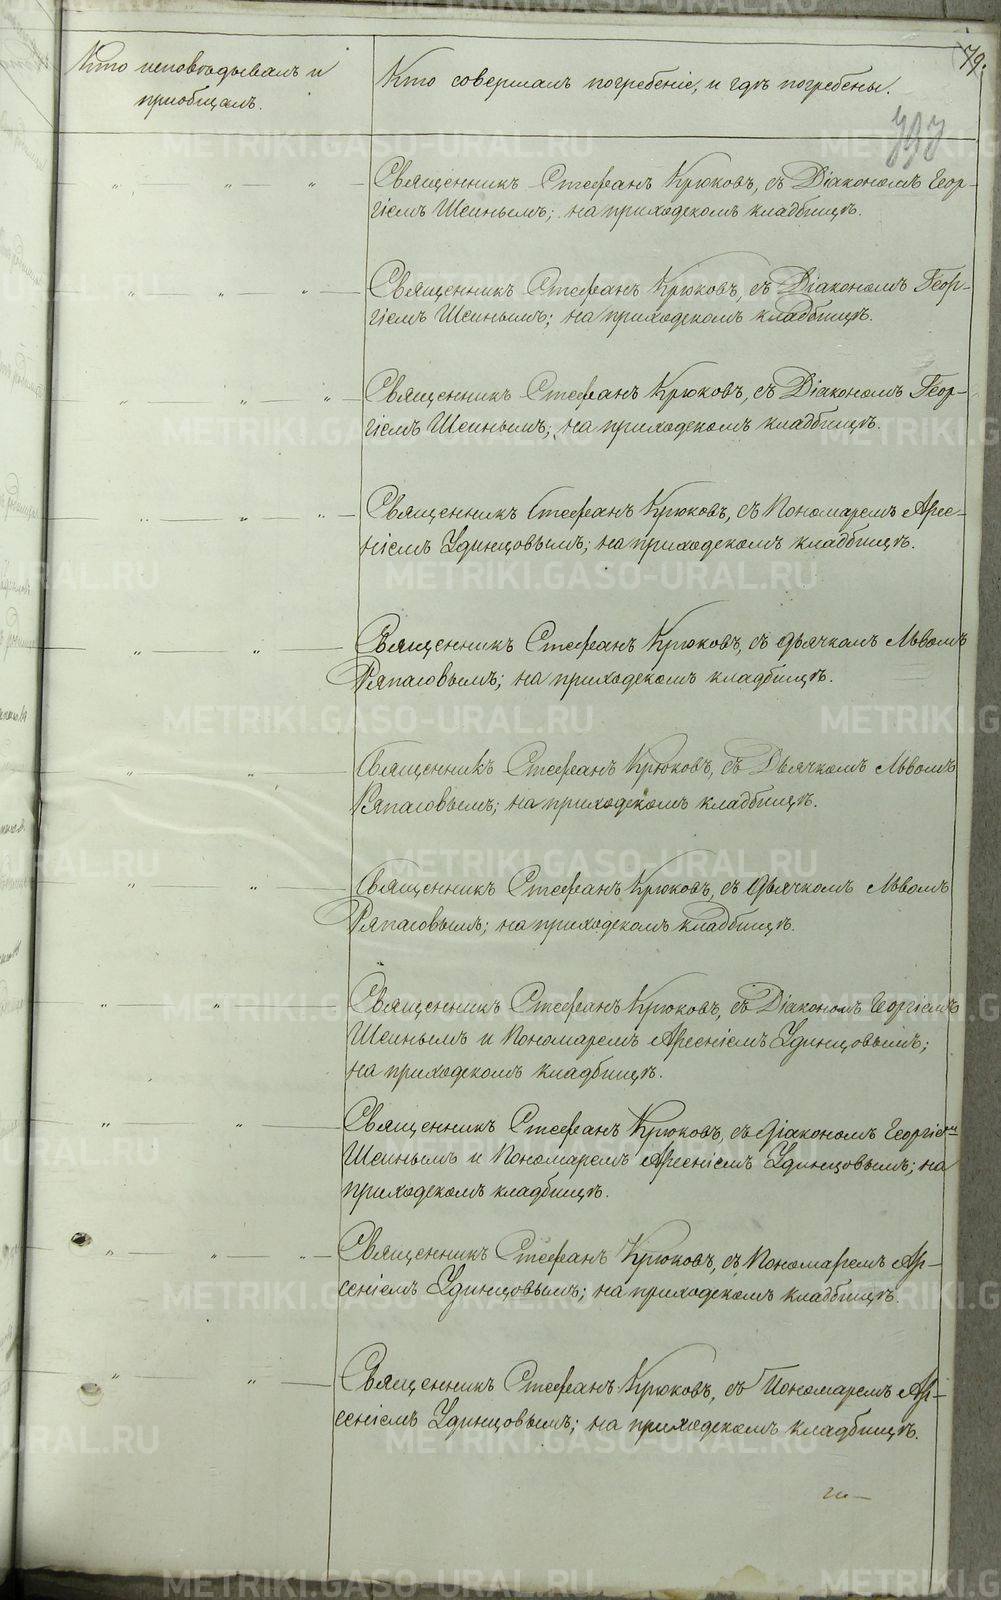 79.
Кто исповѣдывалъ и
пріобщалъ.
Кто совершалъ погребеніе, и гдѣ погребены.
Священникъ Стефанъ Крюковъ, съ Діакономъ Геор-
гіемъ Шеинымъ; на приходскомъ кладбищѣ.
Священникъ Стефанъ Крюковъ, съ Діакономъ Геор-
гіемъ Шеинымъ; на приходскомъ кладбищѣ.
Священникъ Стефанъ Крюковъ, съ Діакономъ Геор-
гіемъ Шеинымъ; на приходскомъ кладбищѣ.
Священникъ Стефанъ Крюковъ, съ Пономаремъ Арсе-
ніемъ Удинцовымъ; на приходскомъ кладбищѣ.
Священникъ Стефанъ Крюковъ, съ дьячкомъ Львомъ
Ряпасовымъ; на приходскомъ кладбищѣ.
Священникъ Стефанъ Крюковъ, съ Дьячкомъ Львомъ
Ряпасовымъ; на приходскомъ кладбищѣ.
Священникъ Стефанъ Крюковъ, съ дьячкомъ Львомъ
Ряпасовымъ; на приходскомъ кладбищѣ.
Священникъ Стефанъ Крюковъ, съ Діакономъ Георгіемъ
Шеинымъ и Пономаремъ Арсеніемъ Удинцовымъ;
на приходскомъ кладбищѣ.
Священникъ Стефанъ Крюковъ, съ діакономъ Георгіемъ
Шеинымъ и Пономаремъ Арсеніемъ Удинцовымъ; на
приходскомъ кладбищѣ.
Священникъ Стефанъ Крюковъ, съ Пономаремъ Ар-
сеніемъ Удинцовымъ; на приходскомъ кладбищѣ.
Священникъ Стефанъ Крюковъ, съ Пономаремъ Ар-
сеніемъ Удинцовымъ; на приходскомъ кладбищѣ.
METRIKI.GASO-URAL.RU